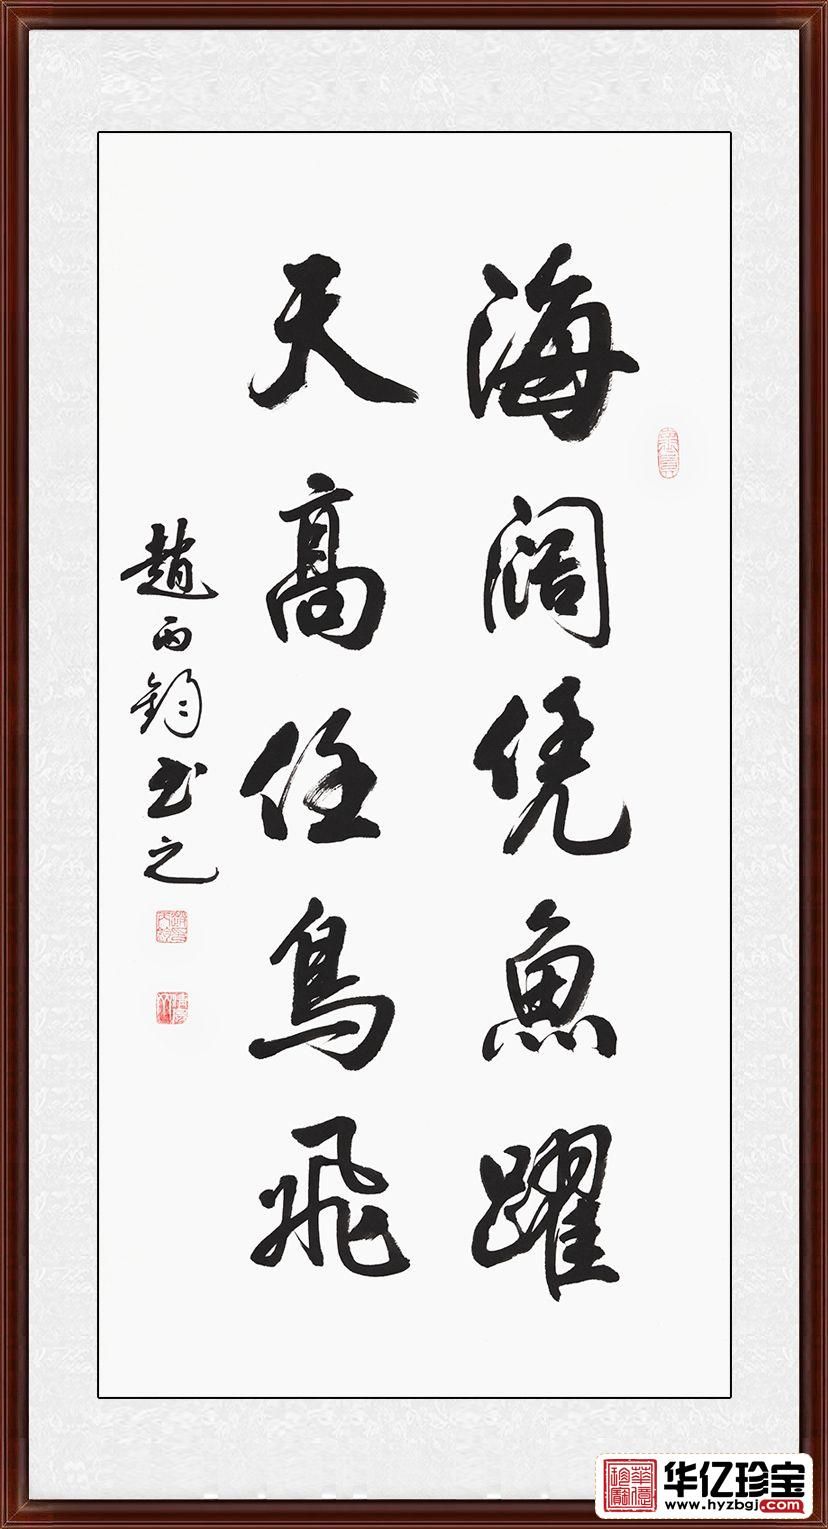 海阔凭魚躍
天高任鳥飛
趙雨鈞书之
华亿珍宝
www.hyzbgj.com